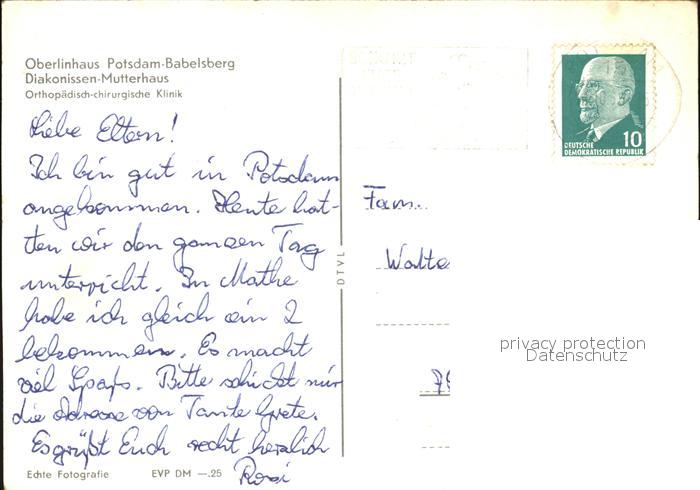 Oberlinhaus Potsdam-Babelsberg
Diakonissen-Mutterhaus
Orthopädisch-chirurgische Klinik
Liebe Eltern!
Ich bin gut in Potsdam
angekommen. Heute hat-
ten wir den ganzen Tag
unterricht. In Mathe
habe ich gleich ein 2
bekommen. Es macht
viel Spaß. Bitte schickt mir
die Adresse von Tante Grete.
Es grüßt Euch recht herzlich
Rosi
Echte Fotografie EVP DM —.25
DTVL
10
DEUTSCHE
DEMOKRATISCHE REPUBLIK
Fam.
Walte
privacy protection
Datenschutz